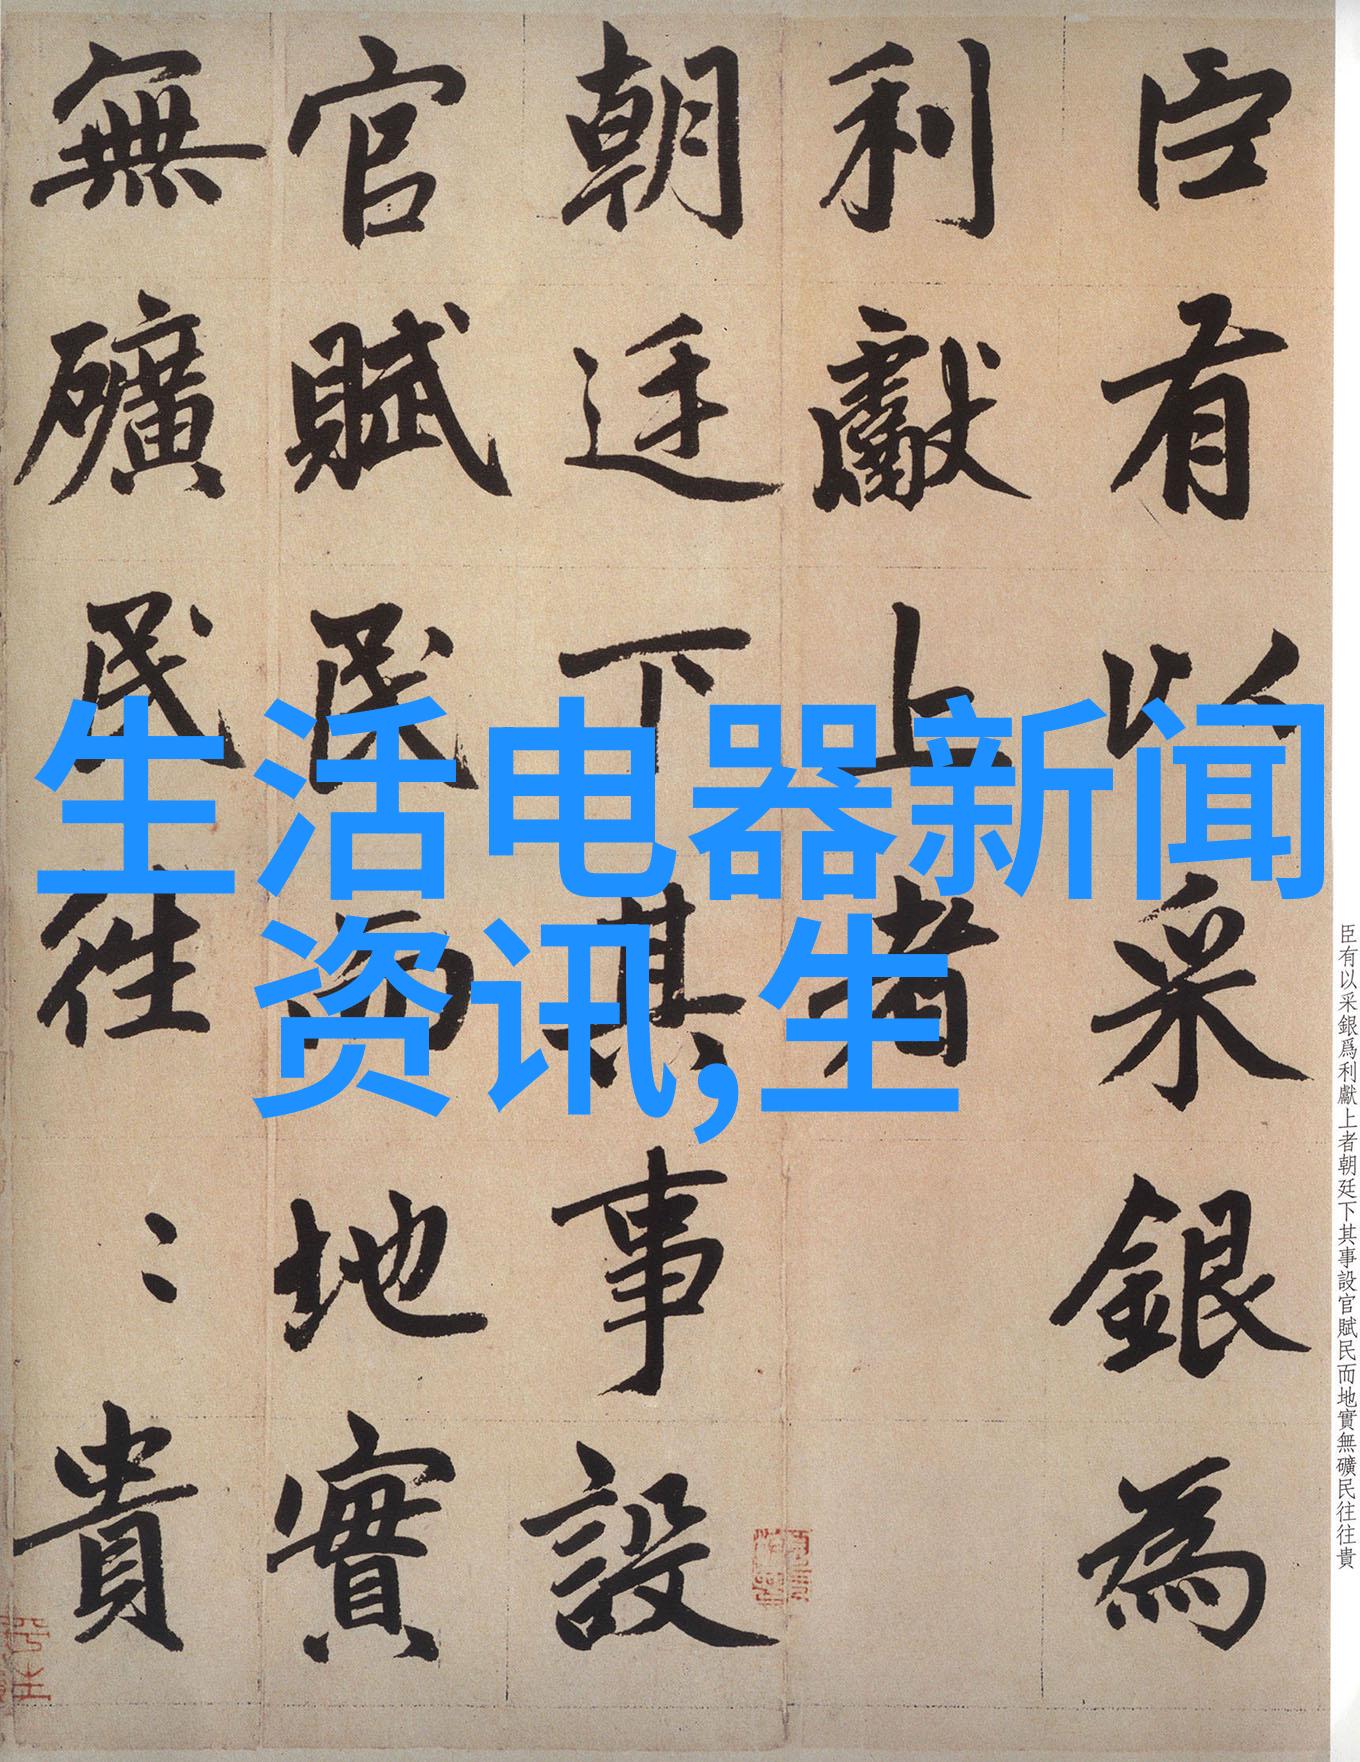 臣有以采銀為
利獻上者
朝廷下其事設
官賦民而地實
無礦民往〻貴
生活电器新闻
资讯,生
臣有以采銀爲利獻上者朝廷下其事設官賦民而地實無礦民往往貴